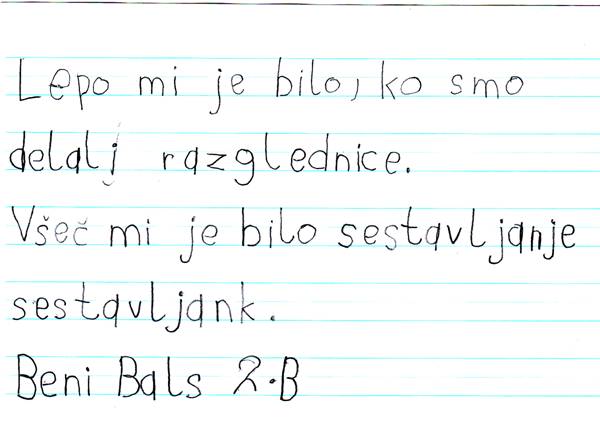 Lepo mi je bilo, ko smo
delalj razglednice.
Všeč mi je bilo sestavljanje
sestavljank.
Beni Bals 2.B